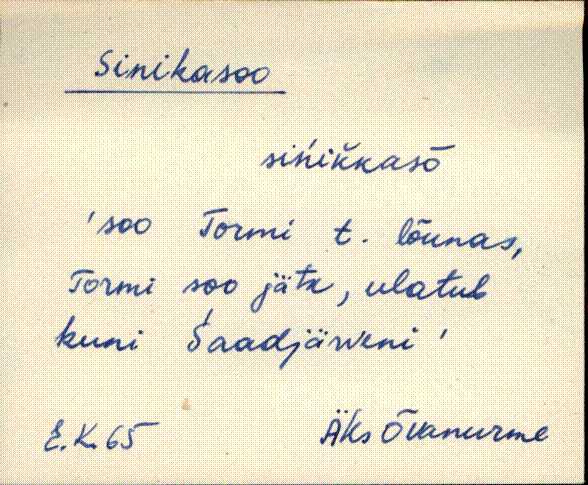 Sinikasoo
sińik̆kasō
'soo Tormi t. lõunas,
Tormi soo jätk, ulatub
kuni Saadjärveni'
E.K. 65 Äks Õvanurme